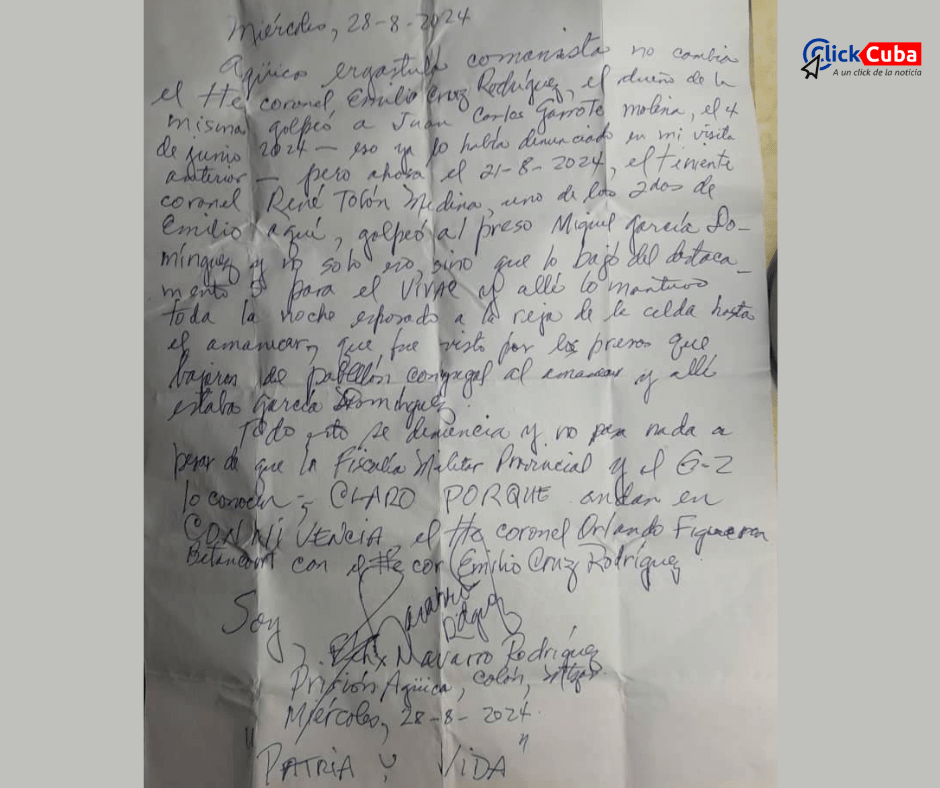 ClickCuba
A un click de la noticia
Miércoles, 28-8-2024
Agüica ergástula comunista no cambia
el tte coronel Emilio Cruz Rodríguez, el dueño de la
misma golpeó a Juan Carlos Garrote Molina, el 4
de junio 2024 — eso ya lo había denunciado en mi visita
anterior — pero ahora el 21-8-2024, el teniente
coronel René Tolón Medina, uno de los 2dos de
Emilio aquí, golpeó al preso Miguel García Do-
mínguez y no solo eso, sino que lo bajó del destaca-
mento 5 para el VIVAC y allí lo mantuvo
toda la noche esposado a la reja de la celda hasta
el amanecer, que fue visto por los presos que
bajaron de pabellón conyugal al amanecer y allí
estaba García Domínguez.
Todo esto se denuncia y no pasa nada a
pesar de que la Fiscalía Militar Provincial y el G-2
lo conocen; CLARO PORQUE andan en
CONNIVENCIA el tte coronel Orlando Figueroa
Betancourt con el tte cor Emilio Cruz Rodríguez
Soy,
Navarro
Rdguez
Félix Navarro Rodríguez
Prisión Agüica, Colón, Mtzas.
Miércoles, 28-8-2024.
"PATRIA Y VIDA"